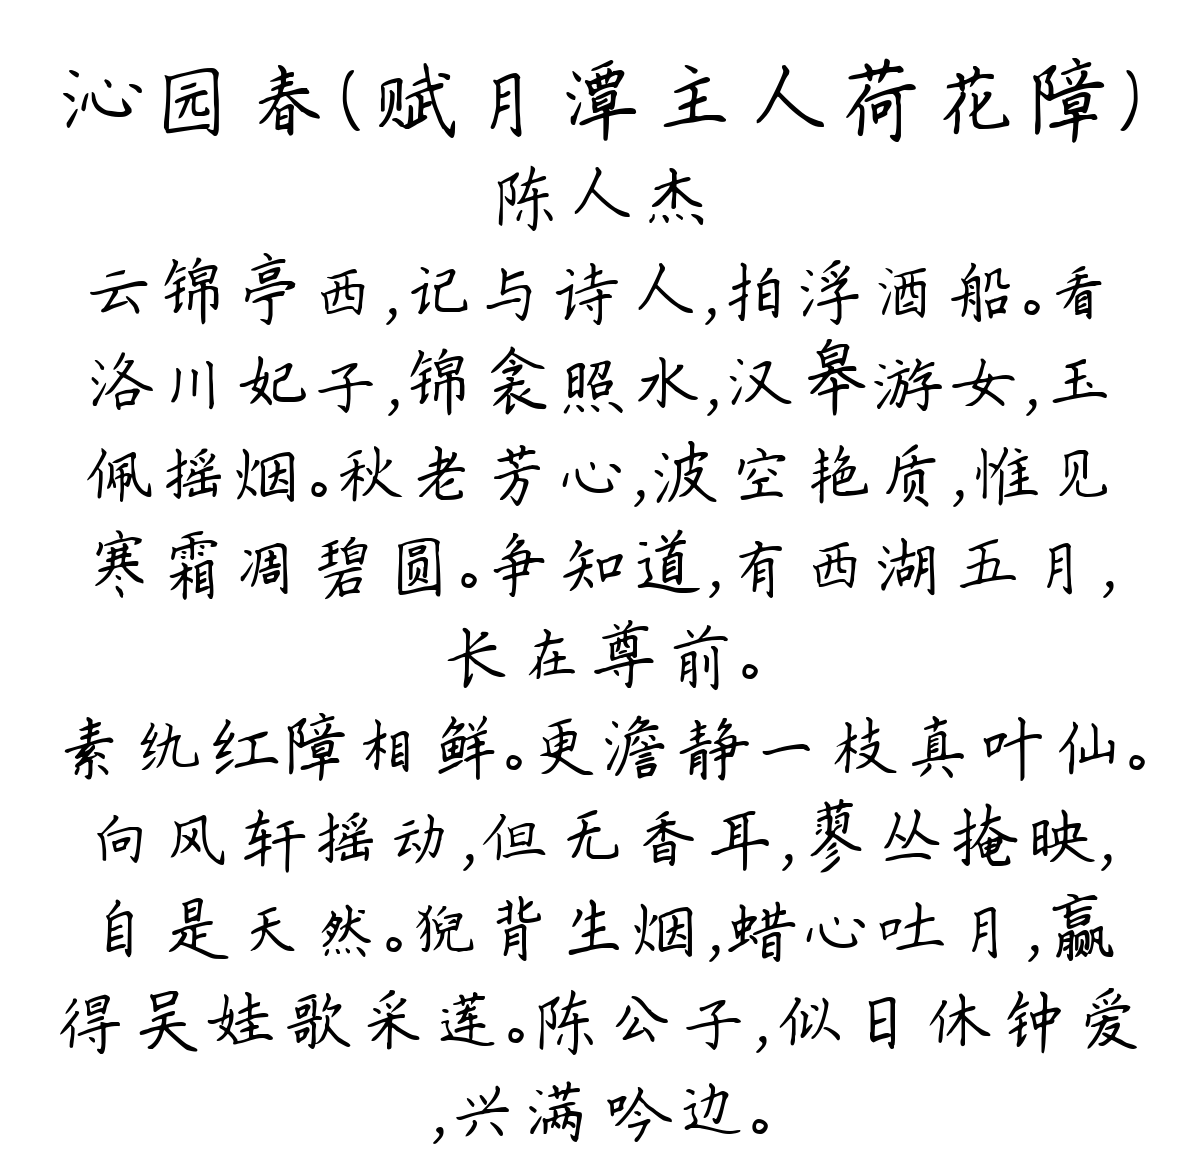 沁园春(赋月潭主人荷花障)
陈人杰
云锦亭西,记与诗人,拍浮酒船。看
洛川妃子,锦衾照水,汉皋游女,玉
佩摇烟。秋老芳心,波空艳质,惟见
寒霜凋碧圆。争知道,有西湖五月,
长在尊前。
素纨红障相鲜。更澹静一枝真叶仙。
向风轩摇动,但无香耳,蓼丛掩映,
自是天然。猊背生烟,蜡心吐月,赢
得吴娃歌采莲。陈公子,似日休钟爱
,兴满吟边。